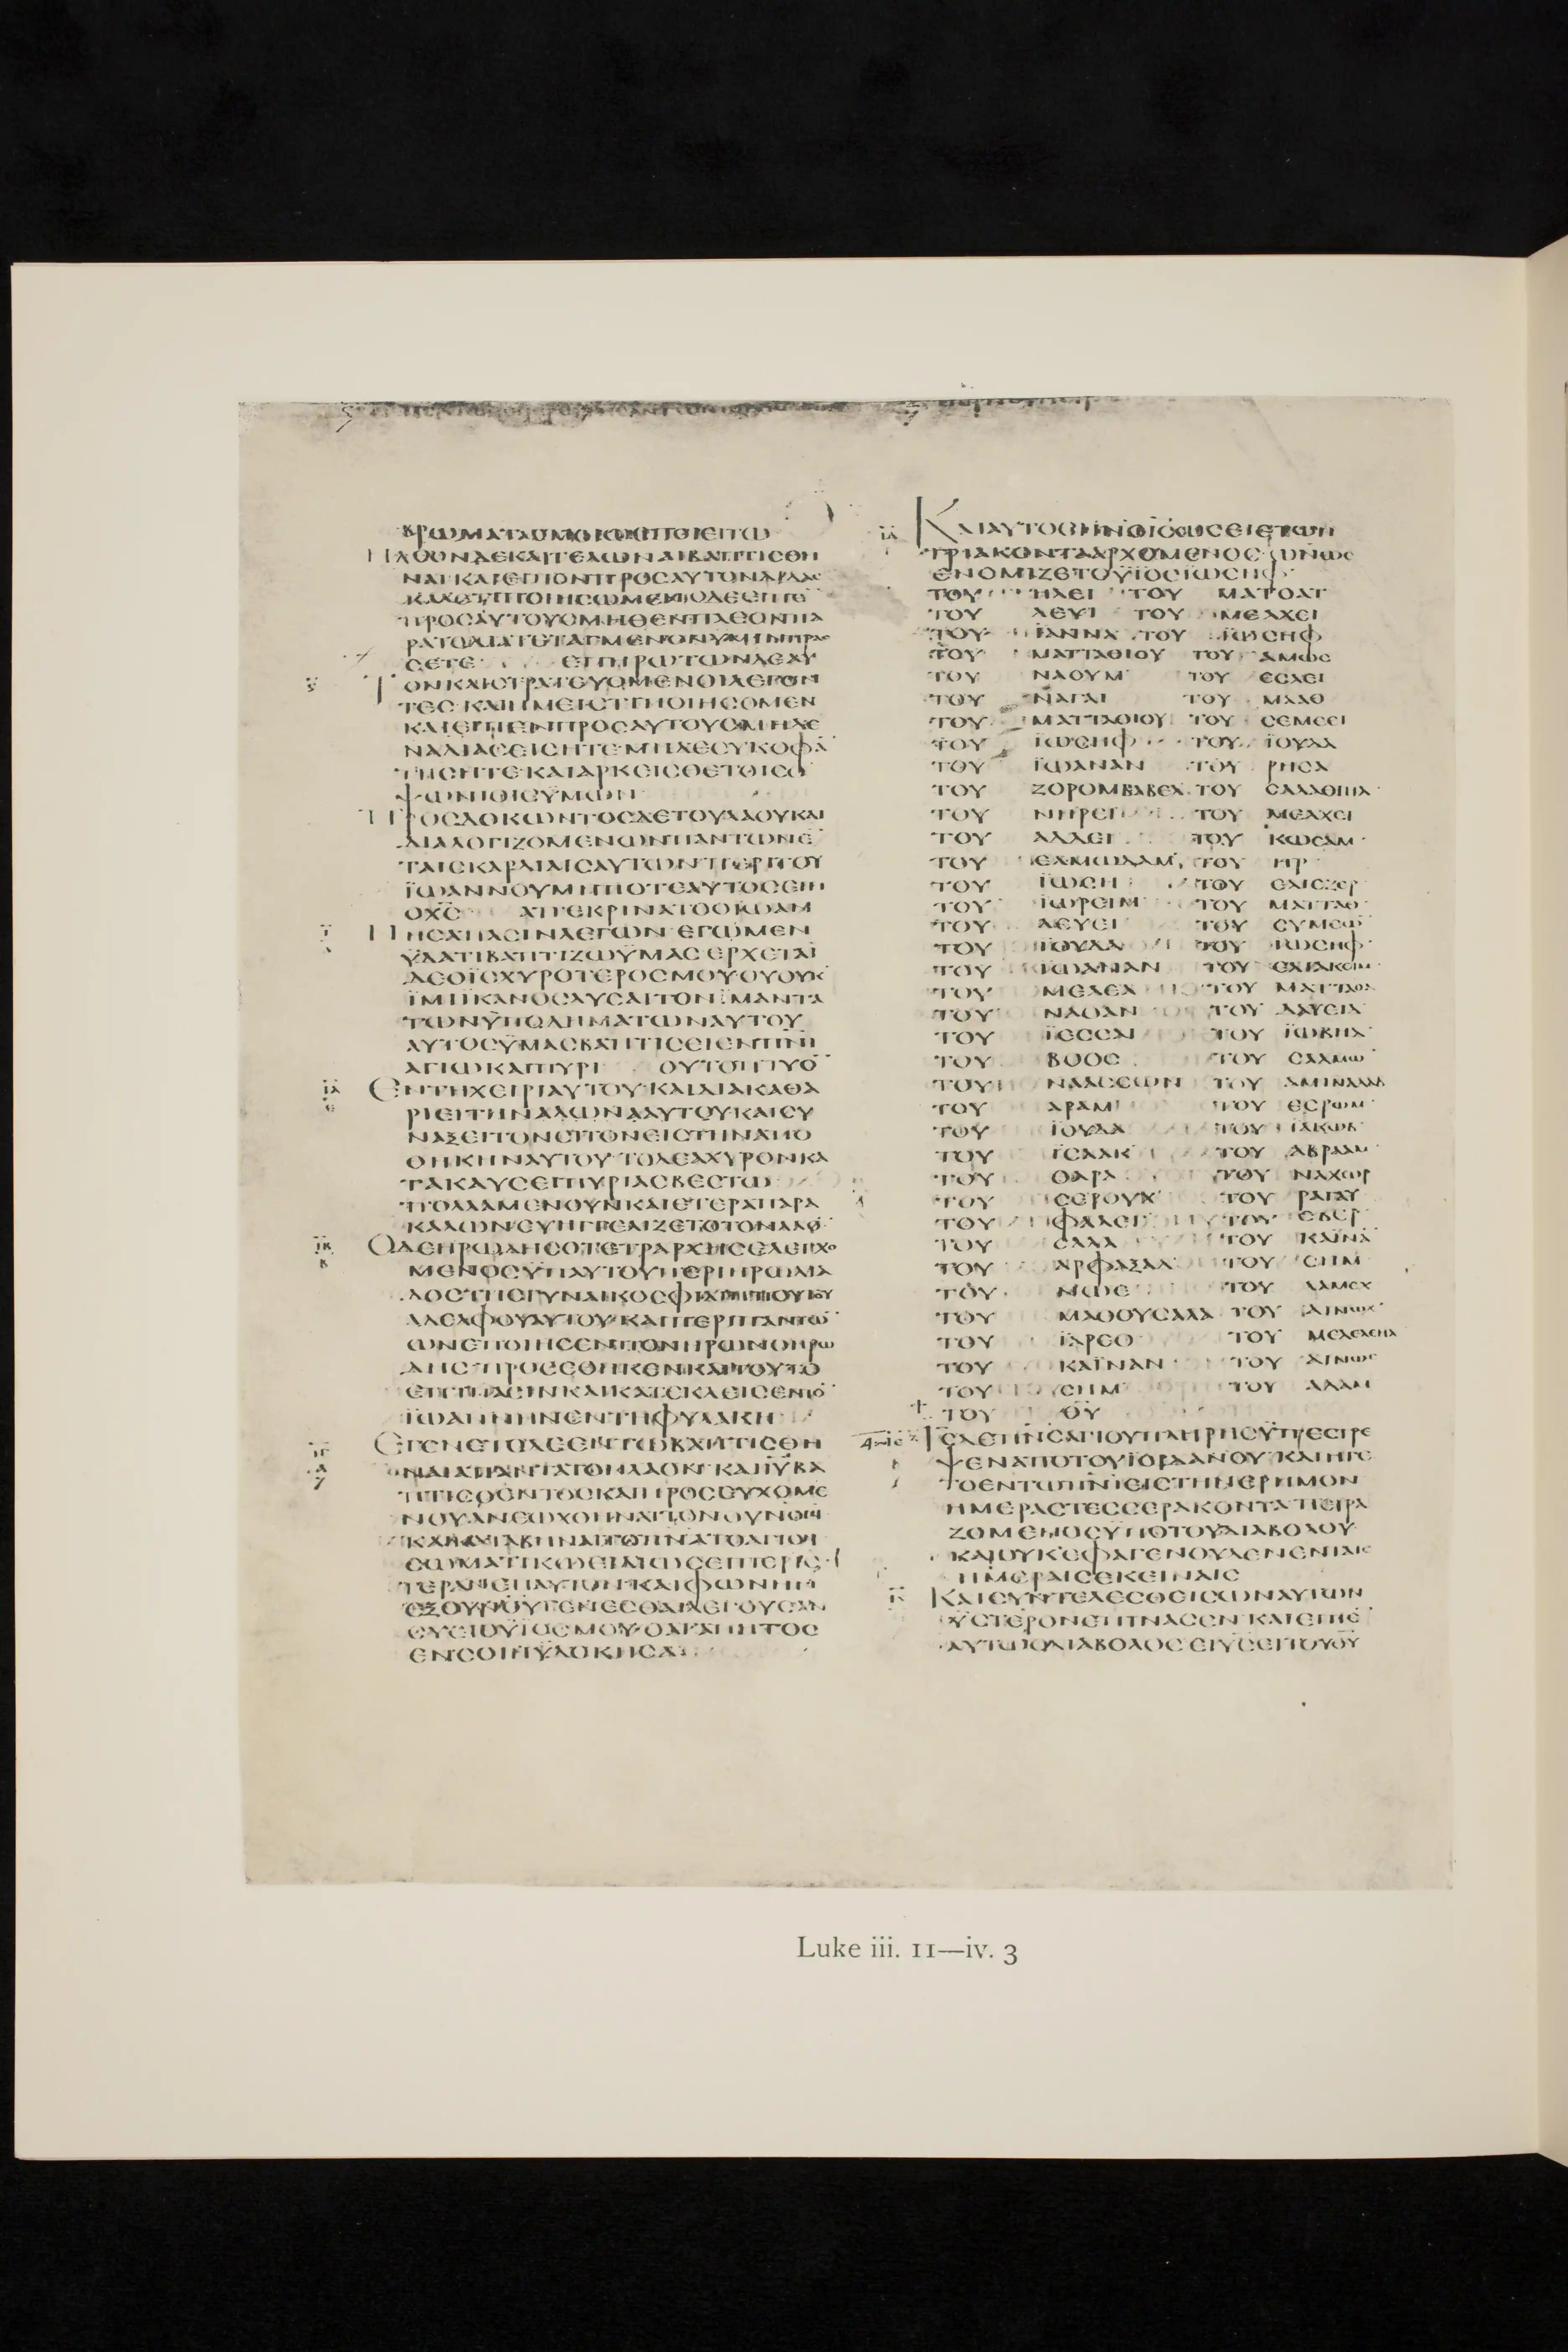 ΒΡΩΜΑΤΑΟΜΟΙΩΣΠΟΙΕΙΤΩ
ΗΛΘΟΝΔΕΚΑΙΤΕΛΩΝΑΙΒΑΠΤΙΣΘΗ
ΝΑΙ ΚΑΙΕΙΠΟΝΠΡΟΣΑΥΤΟΝΔΙΔΑΣ
ΚΑΛΕΤΙΠΟΙΗΣΩΜΕΝΟΔΕΕΙΠΕ̅
ΠΡΟΣΑΥΤΟΥΣΜΗΘΕΝΠΛΕΟΝΠΑ
ΡΑΤΟΔΙΑΤΕΤΑΓΜΕΝΟΝΥΜΙΝΠΡΑΣ
ΣΕΤΕ ΕΠΗΡΩΤΩΝΔΕΑΥ
ΤΟΝΚΑΙΣΤΡΑΤΕΥΟΜΕΝΟΙΛΕΓΟΝ
ΤΕΣ ΚΑΙΗΜΕΙΣΤΙΠΟΙΗΣΟΜΕΝ
ΚΑΙΕΙΠΕΝΠΡΟΣΑΥΤΟΥΣΜΗΔΕ
ΝΑΔΙΑΣΕΙΣΗΤΕΜΗΔΕΣΥΚΟΦΑ̅
ΤΗΣΗΤΕΚΑΙΑΡΚΕΙΣΘΕΤΟΙΣΟ
ΨΩΝΙΟΙΣΫΜΩΝ
ΠΡΟΣΔΟΚΩΝΤΟΣΔΕΤΟΥΛΑΟΥΚΑΙ
ΔΙΑΛΟΓΙΖΟΜΕΝΩΝΠΑΝΤΩΝΕ̅
ΤΑΙΣΚΑΡΔΙΑΙΣΑΥΤΩΝΠΕΡΙΤΟΥ
ΪΩΑΝΝΟΥΜΗΠΟΤΕΑΥΤΟΣΕΙΗ
ΟΧ̅Σ̅ ΑΠΕΚΡΙΝΑΤΟΟΪΩΑΝ
ΝΗΣΑΠΑΣΙΝΛΕΓΩΝ ΕΓΩΜΕΝ
ΫΔΑΤΙΒΑΠΤΙΖΩΫΜΑΣ ΕΡΧΕΤΑΙ
ΔΕΟΪΣΧΥΡΟΤΕΡΟΣΜΟΥΟΥΟΥΚ
ΪΜΙΪΚΑΝΟΣΛΥΣΑΙΤΟΝΪΜΑΝΤΑ
ΤΩΝΫΠΟΔΗΜΑΤΩΝΑΥΤΟΥ
ΑΥΤΟΣΫΜΑΣΒΑΠΤΙΣΕΙΕΝΠ̅Ν̅Ι̅
ΑΓΙΩΚΑΙΠΥΡΙ ΟΥΤΟΠΤΥΟ̅
ΕΝΤΗΧΕΙΡΙΑΥΤΟΥ ΚΑΙΔΙΑΚΑΘΑ
ΡΙΕΙΤΗΝΑΛΩΝΑΑΥΤΟΥΚΑΙΣΥ
ΝΑΞΕΙΤΟΝΣΙΤΟΝΕΙΣΤΗΝΑΠΟ
ΘΗΚΗΝΑΥΤΟΥ ΤΟΔΕΑΧΥΡΟΝΚΑ
ΤΑΚΑΥΣΕΙΠΥΡΙΑΣΒΕΣΤΩ
ΠΟΛΛΑΜΕΝΟΥΝΚΑΙΕΤΕΡΑΠΑΡΑ
ΚΑΛΩΝΕΥΗΓΓΕΛΙΖΕΤΟΤΟΝΛΑΟ̅
ΟΔΕΗΡΩΔΗΣΟΤΕΤΡΑΡΧΗΣΕΛΕΓΧΟ
ΜΕΝΟΣΫΠΑΥΤΟΥΠΕΡΙΗΡΩΔΙΑ
ΔΟΣΤΗΣΓΥΝΑΙΚΟΣΦΙΛΙΠΠΟΥΤΟΥ
ΑΔΕΛΦΟΥΑΥΤΟΥ ΚΑΙΠΕΡΙΠΑΝΤΩ̅
ΩΝΕΠΟΙΗΣΕΝΠΟΝΗΡΩΝΟΗΡΩ
ΔΗΣ ΠΡΟΣΕΘΗΚΕΝΚΑΙΤΟΥΤΟ
ΕΠΙΠΑΣΙΝΚΑΙΚΑΤΕΚΛΕΙΣΕΝΤΟ̅
ΪΩΑΝΝΗΝΕΝΤΗΦΥΛΑΚΗ
ΕΓΕΝΕΤΟΔΕΕΝΤΩΒΑΠΤΙΣΘΗ
ΝΑΙΑΠΑΝΤΑΤΟΝΛΑΟΝ ΚΑΙΙ̅Υ̅ΒΑ
ΠΤΙΣΘΕΝΤΟΣΚΑΙΠΡΟΣΕΥΧΟΜΕ
ΝΟΥΑΝΕΩΧΘΗΝΑΙΤΟΝΟΥΝΟΝ
ΚΑΙΚΑΤΑΒΗΝΑΙΤΟΠ̅Ν̅Α̅ΤΟΑΓΙΟΝ
ΣΩΜΑΤΙΚΩΕΙΔΙΩΣΕΙΠΕΡΙΣ
ΤΕΡΑΝΕΠΑΥΤΟΝ ΚΑΙΦΩΝΗΝ
ΕΞΟΥ̅Ν̅Ο̅Υ̅ΓΕΝΕΣΘΑΙΛΕΓΟΥΣΑΝ
ΣΥΕΙΟΥΪΟΣΜΟΥΟΑΓΑΠΗΤΟΣ
ΕΝΣΟΙΗΥΔΟΚΗΣΑ
ΚΑΙΑΥΤΟΣΗΝΟΙ̅Σ̅ΩΣΕΙΕΤΩΝ
ΤΡΙΑΚΟΝΤΑΑΡΧΟΜΕΝΟΣ ΩΝΩΣ
ΕΝΟΜΙΖΕΤΟΫΪΟΣΪΩΣΗΦ
ΤΟΥ ΗΛΕΙ ΤΟΥ ΜΑΤΘΑΤ
ΤΟΥ ΛΕΥΙ ΤΟΥ ΜΕΛΧΕΙ
ΤΟΥ ΪΑΝΝΑ ΤΟΥ ΪΩΣΗΦ
ΤΟΥ ΜΑΤΤΑΘΙΟΥ ΤΟΥ ΑΜΩΣ
ΤΟΥ ΝΑΟΥΜ ΤΟΥ ΕΣΛΕΙ
ΤΟΥ ΝΑΓΑΙ ΤΟΥ ΜΑΑΘ
ΤΟΥ ΜΑΤΤΑΘΙΟΥ ΤΟΥ ΣΕΜΕΕΙ
ΤΟΥ ΪΩΣΗΦ ΤΟΥ ΪΟΥΔΑ
ΤΟΥ ΪΩΑΝΑΝ ΤΟΥ ΡΗΣΑ
ΤΟΥ ΖΟΡΟΜΒΑΒΕΛ ΤΟΥ ΣΑΛΑΘΙΗΛ
ΤΟΥ ΝΗΡΕΙ ΤΟΥ ΜΕΛΧΕΙ
ΤΟΥ ΑΔΔΕΙ ΤΟΥ ΚΩΣΑΜ
ΤΟΥ ΕΛΜΩΔΑΜ ΤΟΥ ΗΡ
ΤΟΥ ΪΩΣΗ ΤΟΥ ΕΛΙΕΖΕΡ
ΤΟΥ ΪΩΡΕΙΜ ΤΟΥ ΜΑΤΤΑΘ
ΤΟΥ ΛΕΥΕΙ ΤΟΥ ΣΥΜΕΩ̅
ΤΟΥ ΪΟΥΔΑ ΤΟΥ ΪΩΣΗΦ
ΤΟΥ ΪΩΑΝΑΝ ΤΟΥ ΕΛΙΑΚΕΙΜ
ΤΟΥ ΜΕΛΕΑ ΤΟΥ ΜΑΤΤΑΘΑ
ΤΟΥ ΝΑΘΑΝ ΤΟΥ ΔΑΥΕΙΔ
ΤΟΥ ΪΕΣΣΑΙ ΤΟΥ ΪΩΒΗΔ
ΤΟΥ ΒΟΟΣ ΤΟΥ ΣΑΛΜΩ̅
ΤΟΥ ΝΑΑΣΣΩΝ ΤΟΥ ΑΜΙΝΑΔΑΒ
ΤΟΥ ΑΡΑΜ ΤΟΥ ΕΣΡΩΜ
ΤΟΥ ΪΟΥΔΑ ΤΟΥ ΪΑΚΩΒ
ΤΟΥ ΪΣΑΑΚ ΤΟΥ ΑΒΡΑΑΜ
ΤΟΥ ΘΑΡΑ ΤΟΥ ΝΑΧΩΡ
ΤΟΥ ΣΕΡΟΥΧ ΤΟΥ ΡΑΓΑΥ
ΤΟΥ ΦΑΛΕΓ ΤΟΥ ΕΒΕΡ
ΤΟΥ ΣΑΛΑ ΤΟΥ ΚΑΪΝΑ̅
ΤΟΥ ΑΡΦΑΞΑΔ ΤΟΥ ΣΗΜ
ΤΟΥ ΝΩΕ ΤΟΥ ΛΑΜΕΧ
ΤΟΥ ΜΑΘΟΥΣΑΛΑ ΤΟΥ ΑΙΝΩΧ
ΤΟΥ ΪΑΡΕΘ ΤΟΥ ΜΕΛΕΛΕΗΛ
ΤΟΥ ΚΑΪΝΑΝ ΤΟΥ ΑΙΝΩΣ
ΤΟΥ ΣΗΜ ΤΟΥ ΑΔΑΜ
ΤΟΥ Θ̅Υ̅
Ι̅Σ̅ΔΕΠ̅Ν̅Σ̅ΑΓΙΟΥΠΛΗΡΗΣΫΠΕΣΤΡΕ
ΨΕΝΑΠΟΤΟΥΪΟΡΔΑΝΟΥ ΚΑΙΗΓΕ
ΤΟΕΝΤΩΠ̅Ν̅Ι̅ΕΙΣΤΗΝΕΡΗΜΟΝ
ΗΜΕΡΑΣΤΕΣΣΕΡΑΚΟΝΤΑ ΠΕΙΡΑ
ΖΟΜΕΝΟΣΫΠΟΤΟΥΔΙΑΒΟΛΟΥ
ΚΑΙΟΥΚΕΦΑΓΕΝΟΥΔΕΝΕΝΤΑΙΣ
ΗΜΕΡΑΙΣΕΚΕΙΝΑΙΣ
ΚΑΙΣΥΝΤΕΛΕΣΘΕΙΣΩΝΑΥΤΩΝ
ΫΣΤΕΡΟΝΕΠΙΝΑΣΕΝ ΚΑΙΕΙΠΕ̅
ΑΥΤΩΟΔΙΑΒΟΛΟΣ ΕΙΫ̅Σ̅ΕΙΤΟΥΘ̅Υ̅
Luke iii. 11—iv. 3